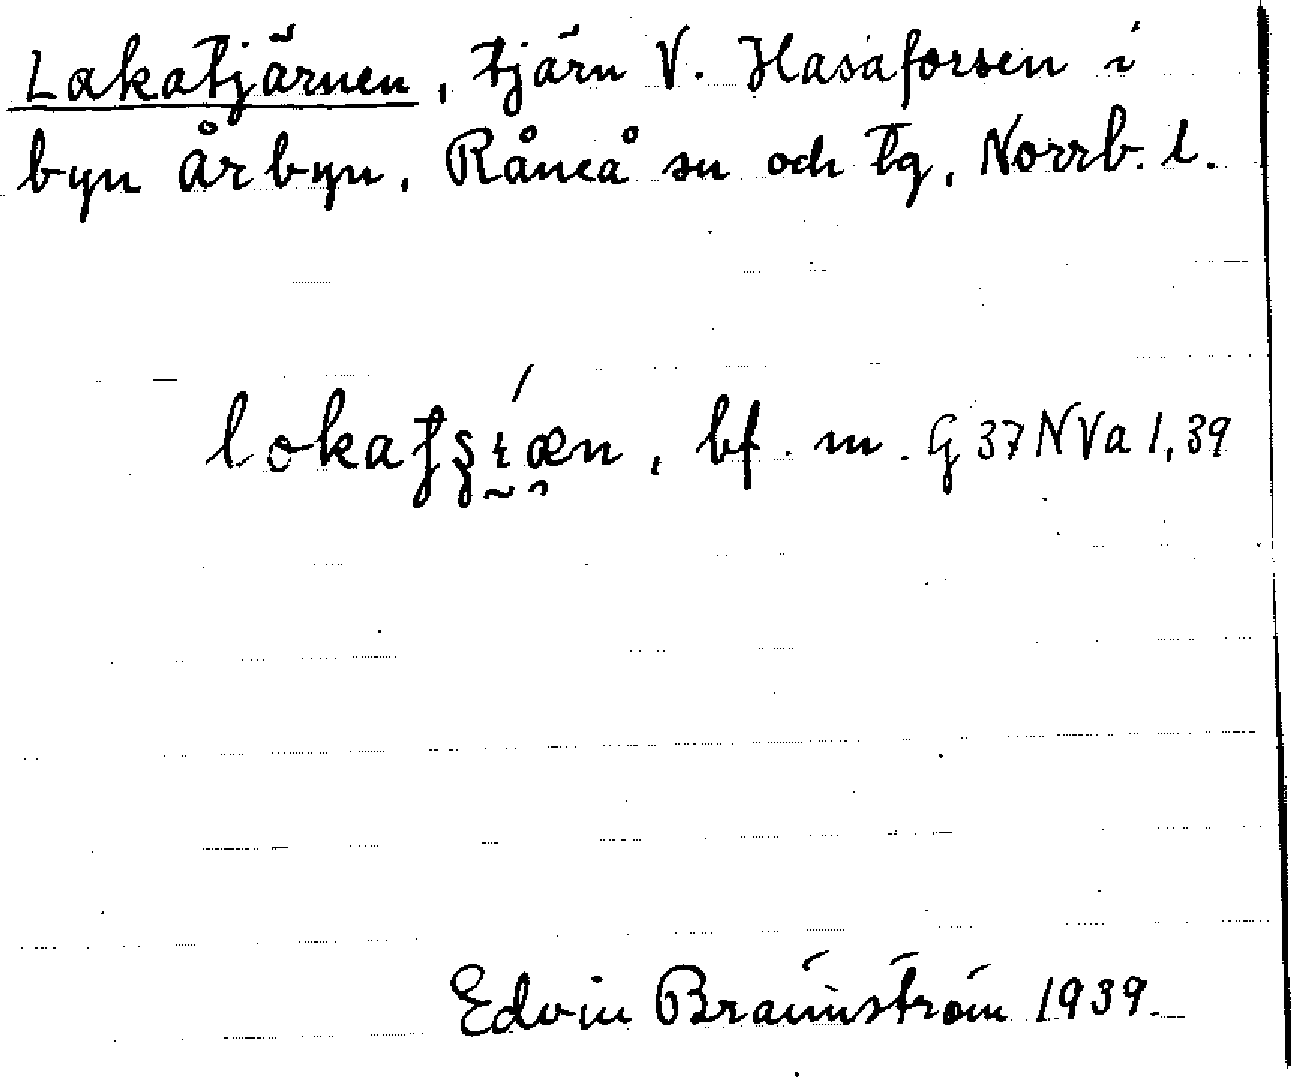 Lakatjärnen, tjärn V. Hasaforsen i
byn Årbyn, Råneå sn och tg, Norrb. l.
bf. m. G 37 N Va 1, 39
Edvin Brännström 1939.